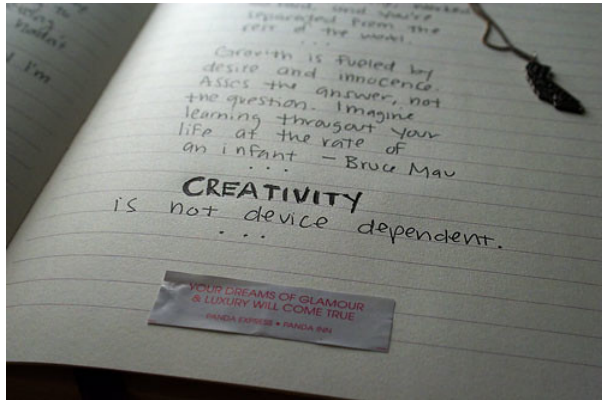 and you're
separated from the
rest of the world.
...
Growth is fueled by
desire and innocence.
Asses the answer, not
the question. Imagine
learning througout your
life at the rate of
an infant - Bruce Mau
...
CREATIVITY
is not device dependent.
...
YOUR DREAMS OF GLAMOUR
& LUXURY WILL COME TRUE
PANDA EXPRESS • PANDA INN
I'm